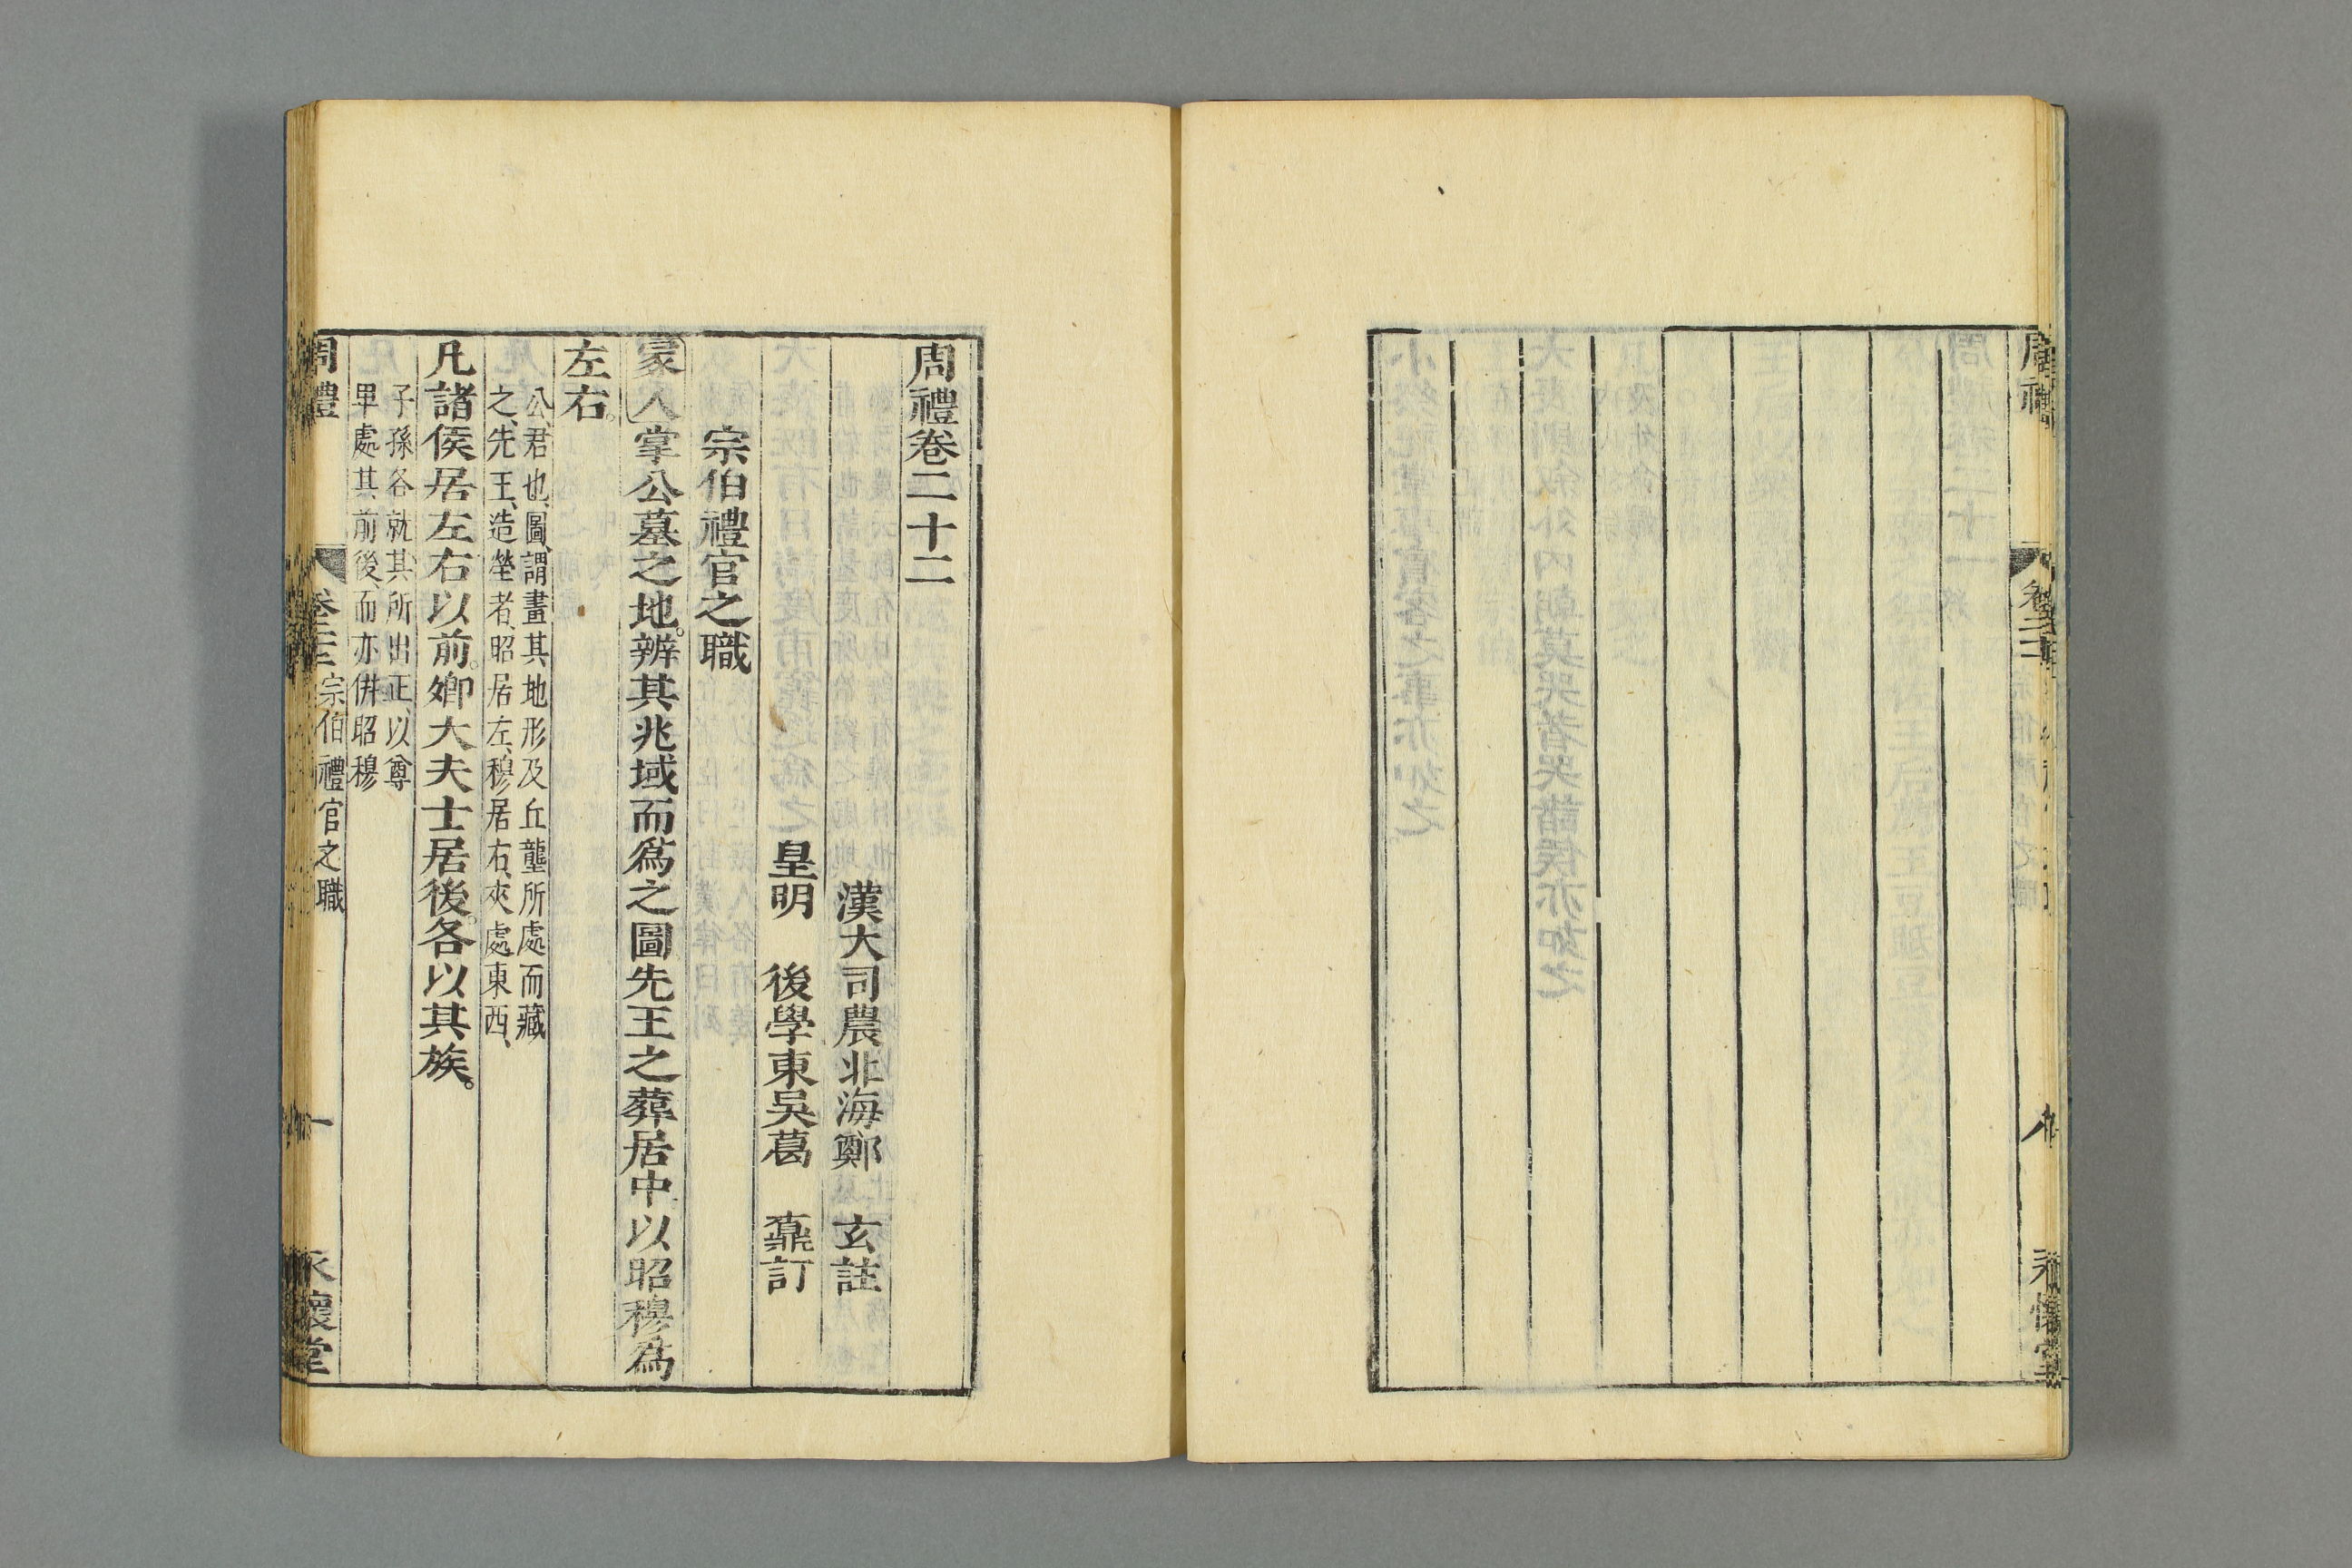 周禮卷二十二
漢大司農北海鄭 玄註
皇明 後學東吳葛 鼒訂
宗伯禮官之職
冢人掌公墓之地。辨其兆域而爲之圖先王之葬居中以昭穆爲
左右。
公、君也、圖、謂畫其地形及丘壟所處而藏
之、先王、造塋者、昭居左、穆居右、夾處東西、
凡諸侯居左右以前。卿大夫士居後。各以其族。
子孫各就其所出正、以尊
卑處其前後、而亦倂昭穆
周禮 卷二十二 宗伯禮官之職 一 永懷堂